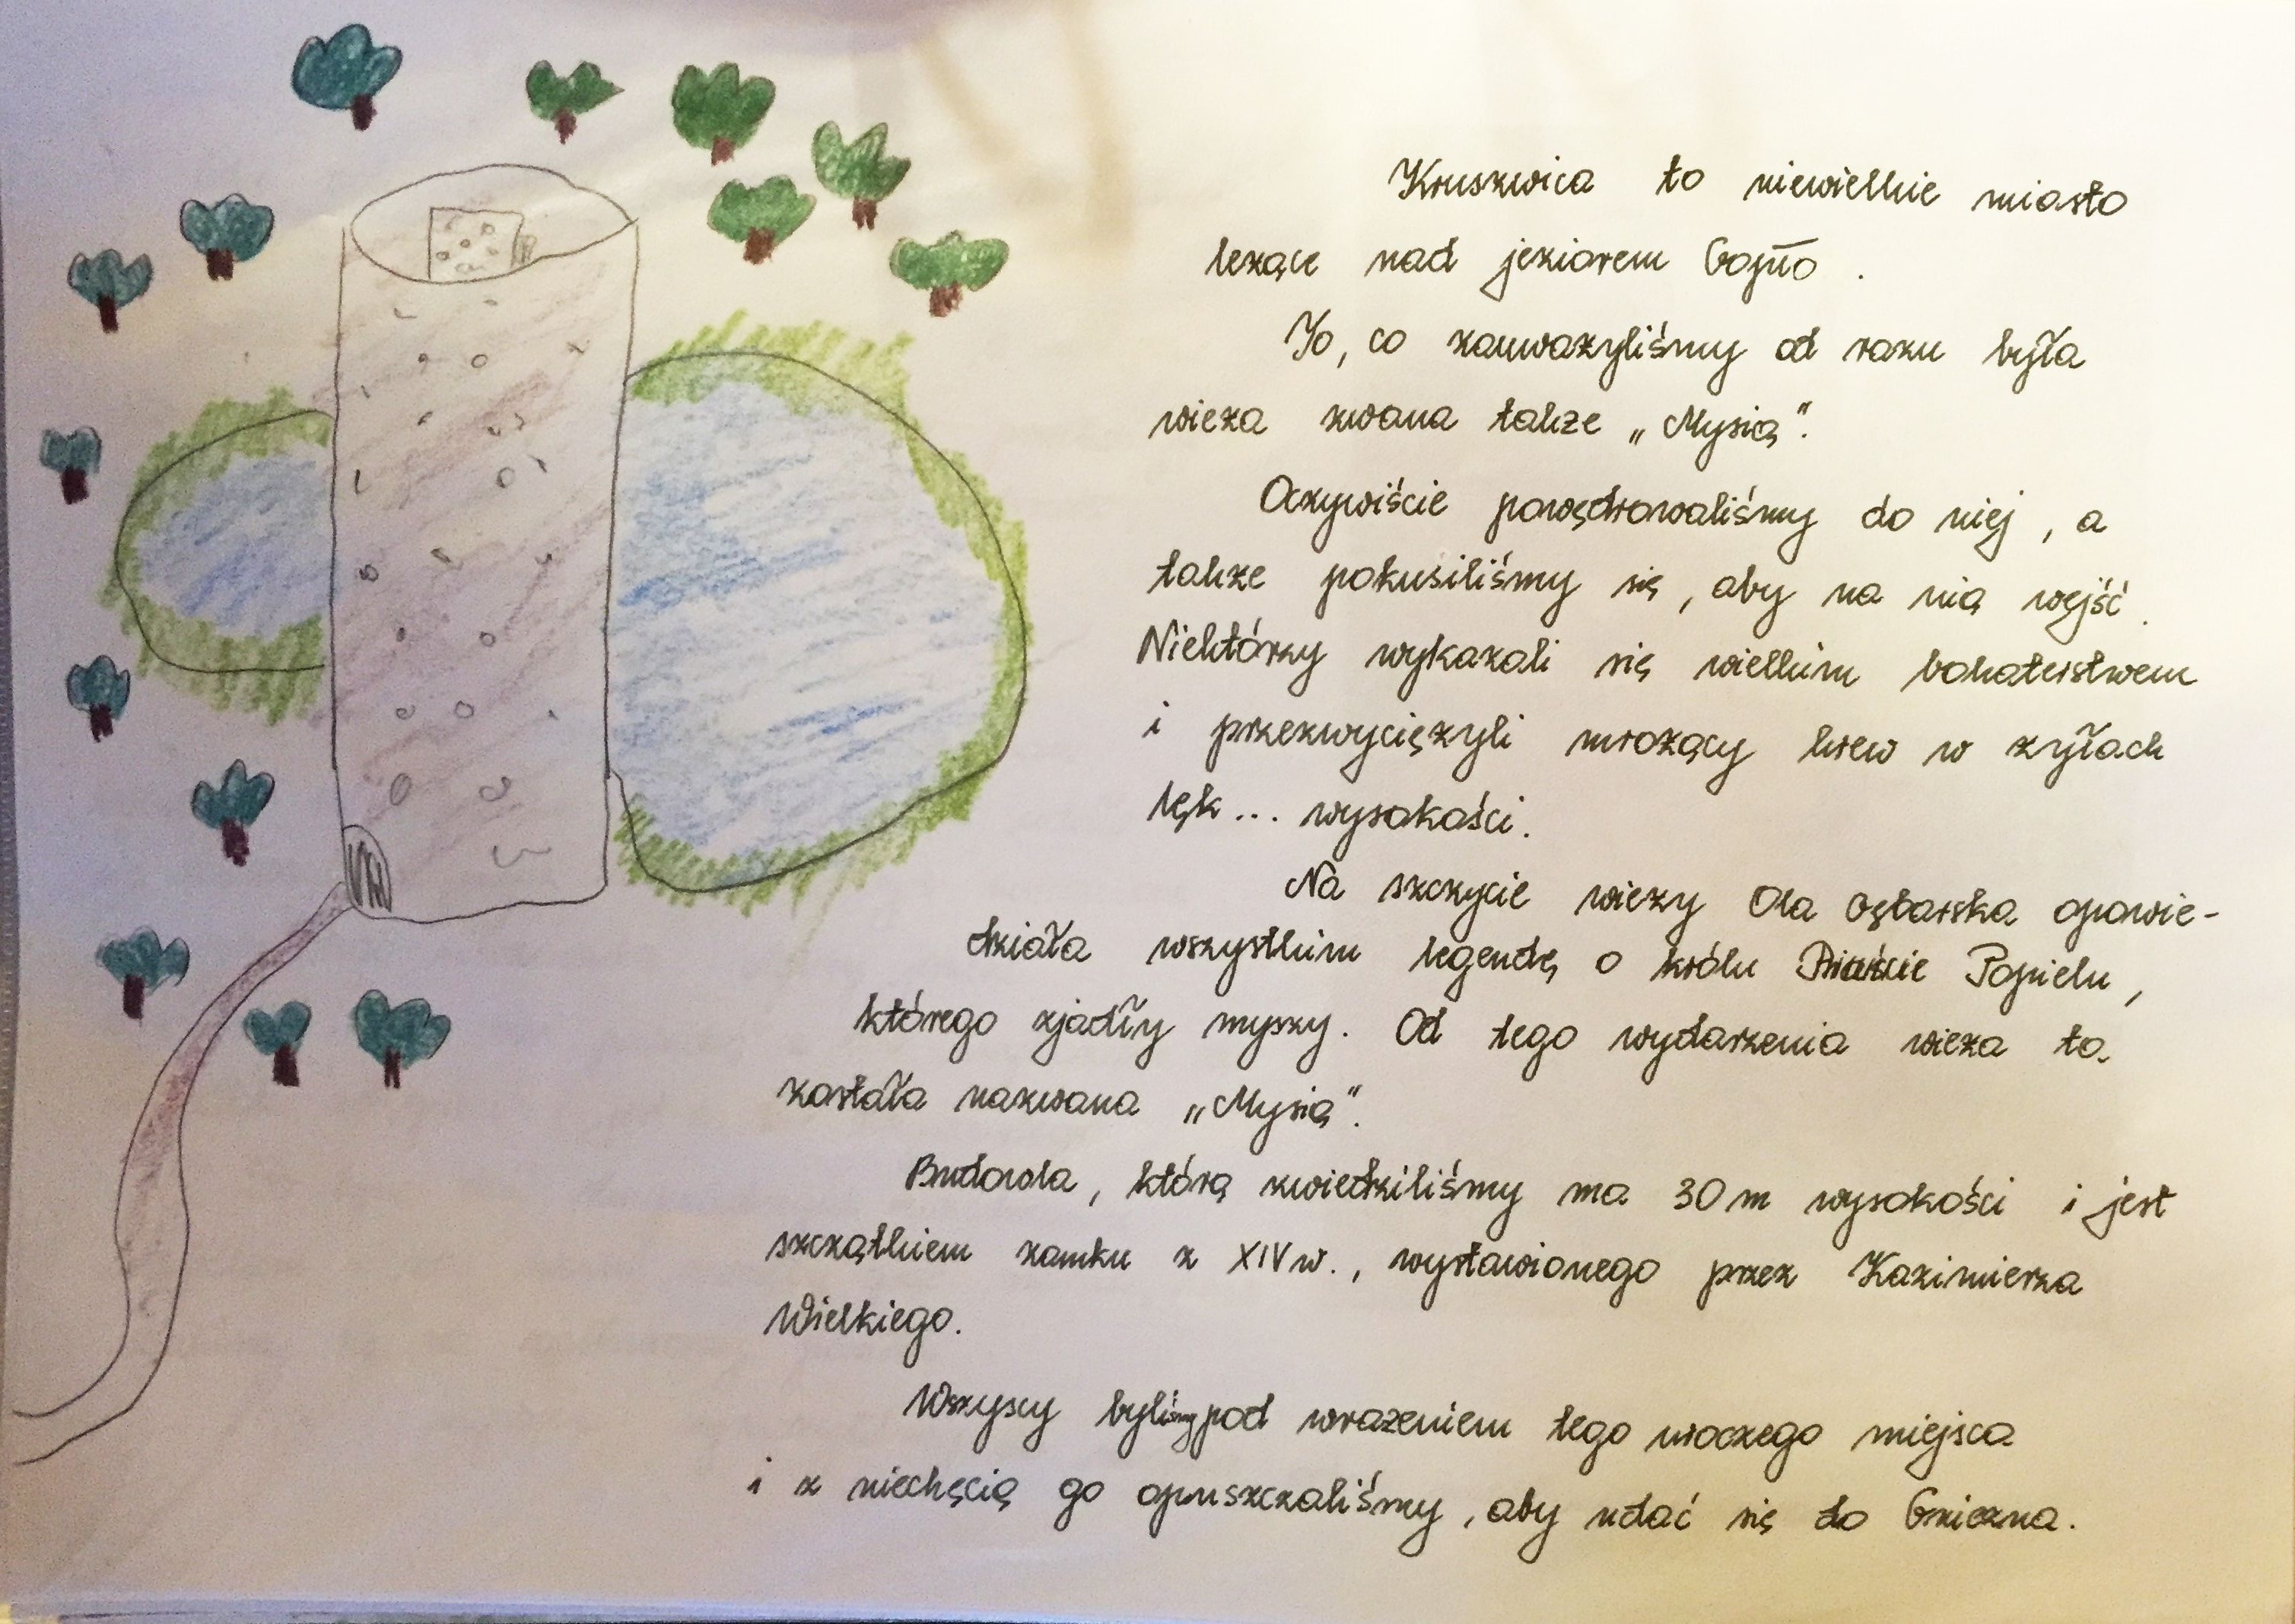 Kruszwica to niewielkie miasto
leżące nad jeziorem Gopło.
To, co zauważyliśmy od razu była
wieża zwana także „Mysią".
Oczywiście powędrowaliśmy do niej, a
także pokusiliśmy się, aby na nią wejść.
Niektórzy wykazali się wielkim bohaterstwem
i przezwyciężyli mrożący krew w żyłach
lęk... wysokości.
Na szczycie wieży Ola Gębarska opowie-
działa wszystkim legendę o królu Piaście Popielu,
którego zjadły myszy. Od tego wydarzenia wieża ta
została nazwana „Mysią".
Budowla, którą zwiedziliśmy ma 30 m wysokości i jest
szczątkiem zamku z XIV w., wystawionego przez Kazimierza
Wielkiego.
Wszyscy byliśmy pod wrażeniem tego uroczego miejsca
i z niechęcią go opuszczaliśmy, aby udać się do Gniezna.